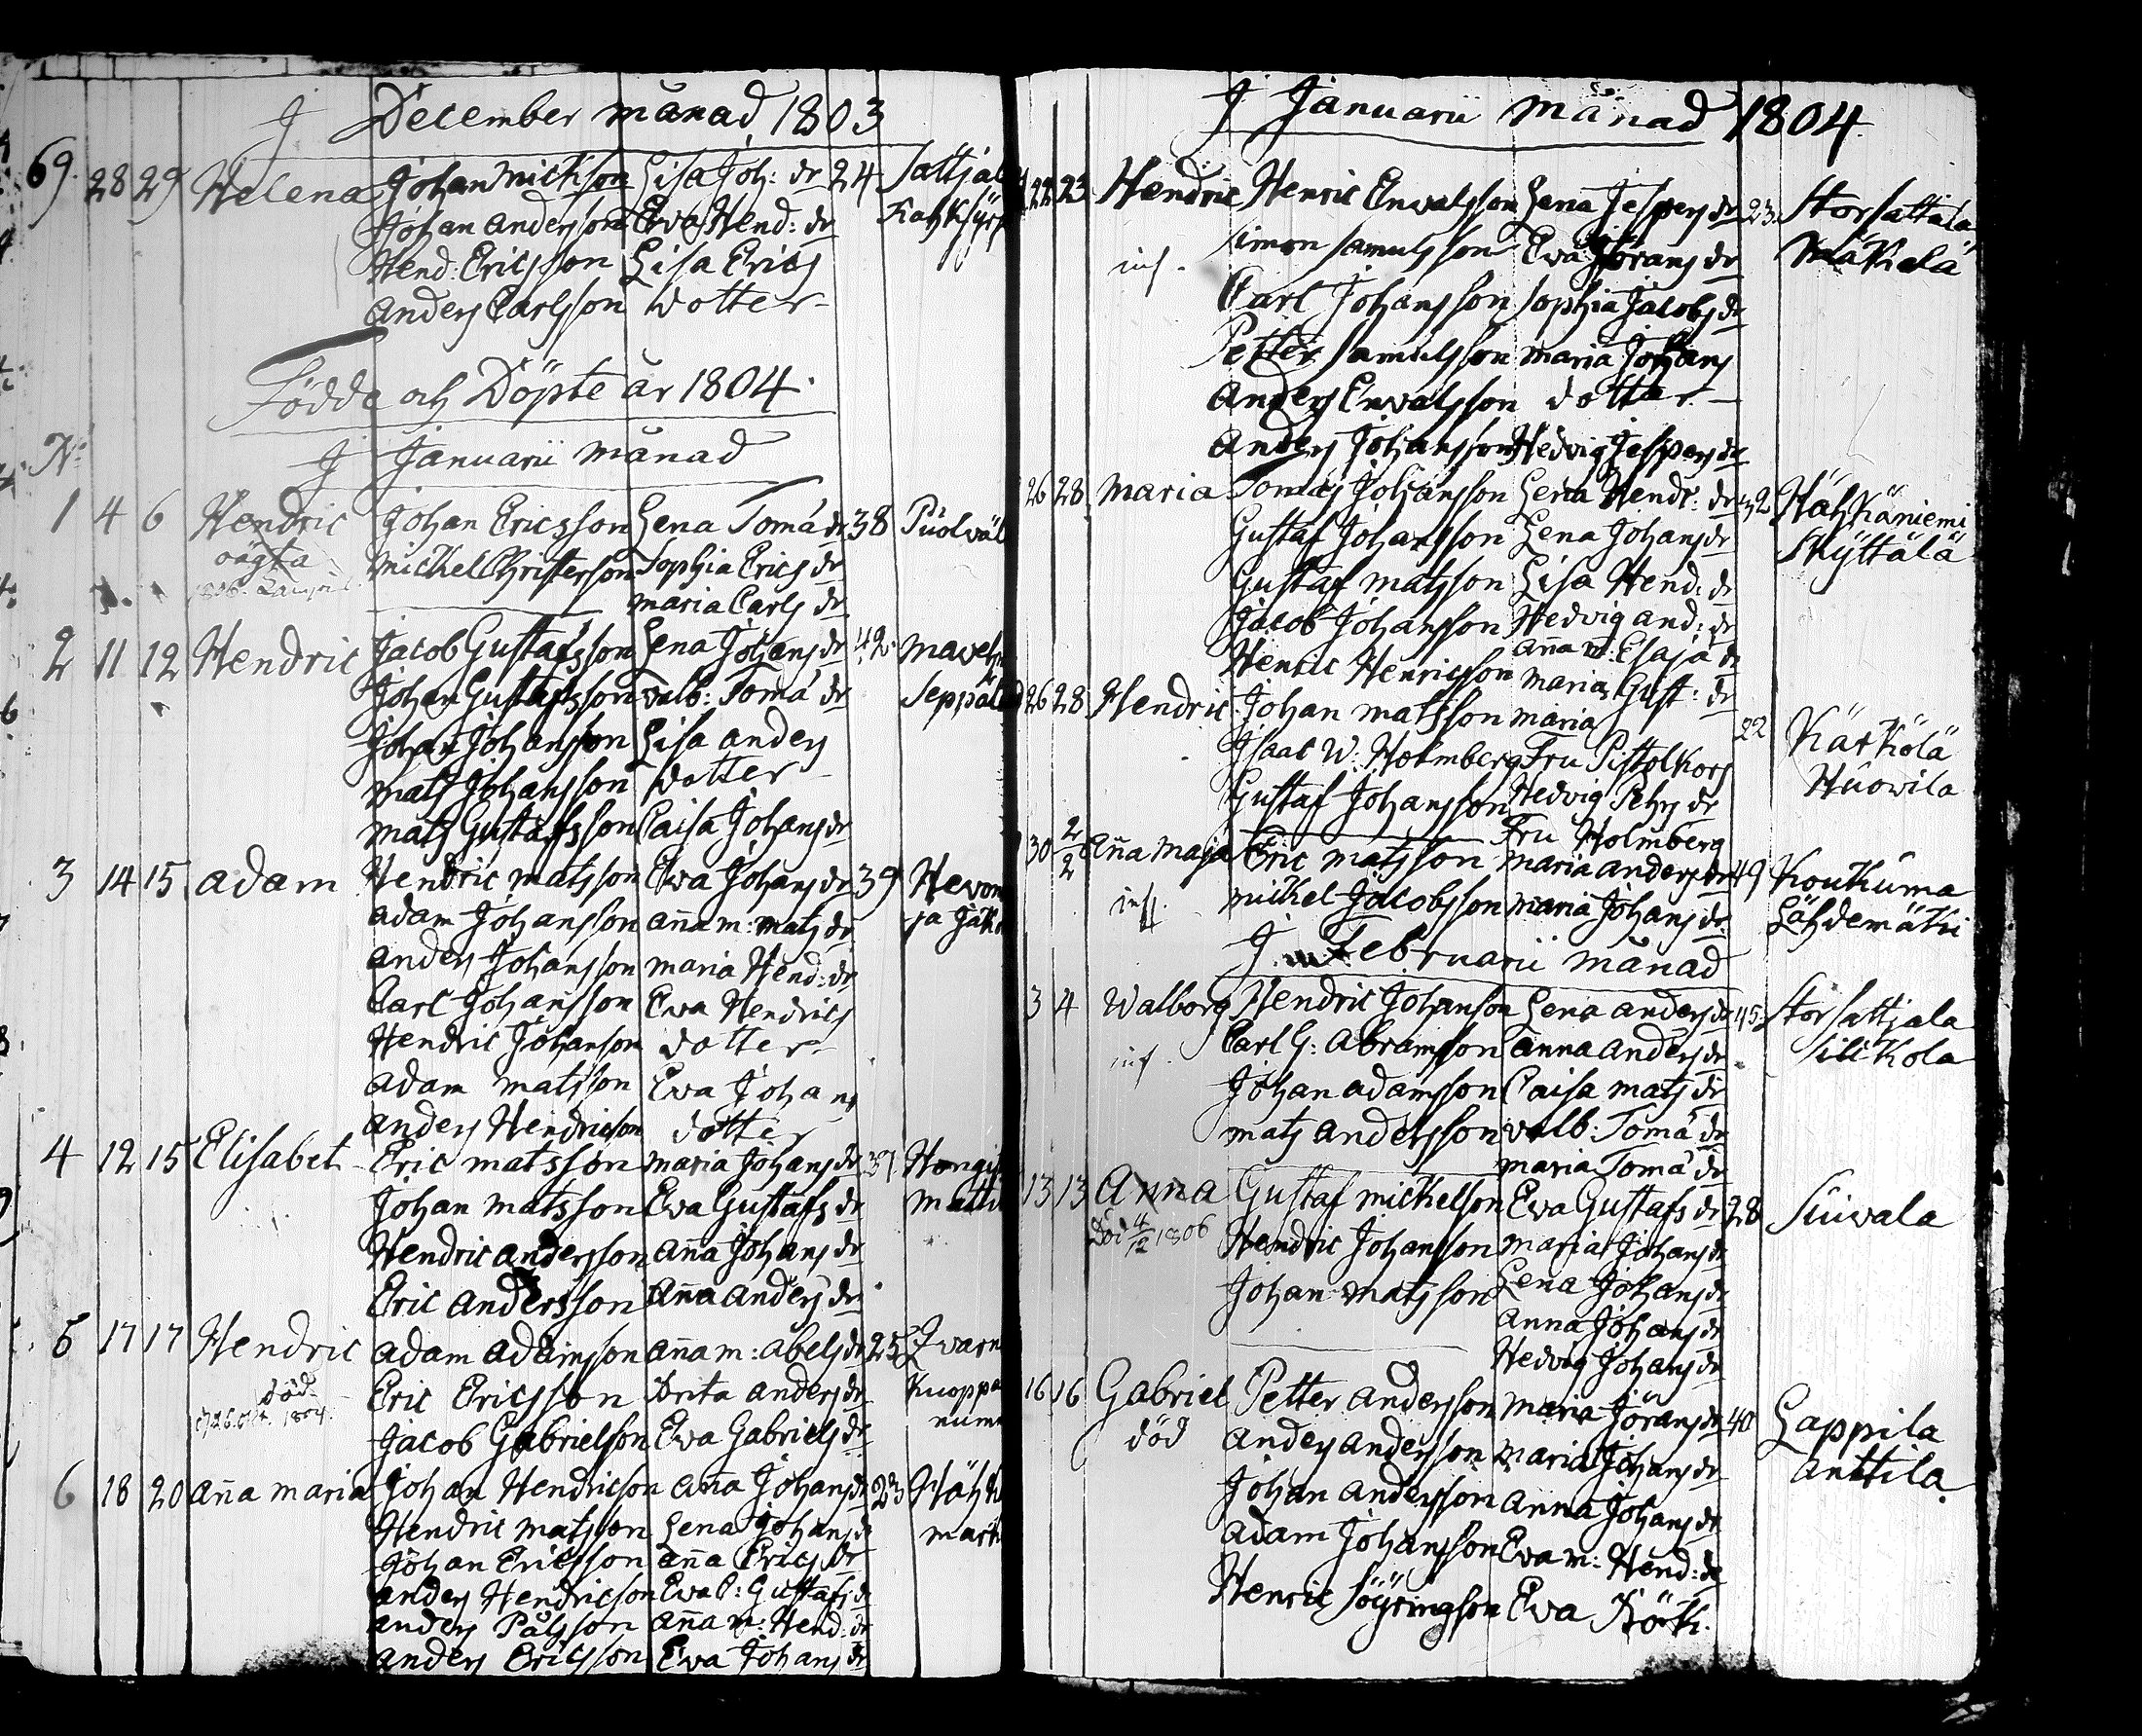 J December månad 1803
69. 28 29 Helena Johan Mickson Lisa Joh: dr 24 Sattjal
Johan Andersson Ewa Hend: dr
Hend: Ericsson Lisa Erics
Anders Carlsson dotter
Födde och Döpte år 1804.
No
J Januarii månad
1 4 6 Hendric Johan Ericsson Lena Tomä dr 38 Puolwäl
oägta Michel Christerson Sophia Erics dr
1806.
Maria Carls dr
2 11 12 Hendric Jacob Gustafsson Lena Johans dr 42.
Johan Gustafsson Walb: Tomä dr Seppälä
Johan Johansson Lisa Anders
Mats Johansson dotter
Mats Gustafsson Caisa Johans dr
3 14 15 Adam Hendric Matsson Ewa Johans dr 39 Hevon
Adam Johansson Anna M: Mats dr ja Jak
Anders Johansson Maria Hend: dr
Carl Johansson Ewa Hendrics
Hendric Johanson dotter
Adam Matsson Ewa Johans
Anders Hendricson dotter
4 12 15 Elisabet Eric Matsson Maria Johans dr 37 Hongis
Johan Matsson Ewa Gustafs dr Matti
Hendric Andersson Anna Johans dr
Eric Andersson Anna Anders dr
5 17 17 Hendric Adam Adamsson Anna M: Abels dr 25 Qvarn
död Eric Ericsson Brita Anders dr Kuoppa
26. oct. 1804. numm
Jacob Gabrielson Ewa Gabriels dr
6 18 20 Anna Maria Johan Hendricson Anna Johans dr 23 Hähk
Hendric Matsson Lena Johans dr mark
Johan Ericsson Anna Erics dr
Anders Hendricson Ewa C: Gustafs dr
Anders Pålsson Anna M: Hend: dr
Anders Ericsson Ewa Johans dr
J Januarii månad 1804.
22 23 Hendric Henric Enwalsson Lena Jespers dr 23. Stor sattiala
inf. Simon Samulsson Ewa Jörans dr Mäkelä
Carl Johansson Sophia Jacobs dr
Petter Samulsson Maria Johans
Anders Enwalsson dotter
Anders Johansson Hedvig Jespers dr
26 28 Maria Tomas Johansson Lena Hendr: dr 32 Hähkäniemi
Gustaf Johansson Lena Johans dr Skyttälä
Gustaf Matsson Lisa Hend: dr
Jacob Johansson Hedvig And: dr
Anna M: Esajä dr
Henric Henricsson Maria Gust: dr
26 28 Hendric Johan Matsson Maria 22 Kärkölä
Isaac W. Holmberg Fru Pistolkors Huowila
Gustaf Johansson Hedvig Pehrs dr
Fru Holmberg
30 2/2 Anna Maja Eric Matsson Maria Anders dr 49 Koukuma
inf. Mickel Jacobsson Maria Johans dr Lähdemäki
J Februarii månad
3 4 Walborg Hendric Johanson Lena Anders dr 45. Stor sattjala
inf. Carl G: Abramsson Anna Anders dr Sillkola
Johan Adamsson Caisa Mats dr
Mats Andersson Walb: Tomä dr
Maria Tomä dr
13 13 Anna Gustaf Mickelson Ewa Gustafs dr 28 Siuvala
Död 4/12 1806 Hendric Johansson Maria Johans dr
Johan Matsson Lena Johans dr
Anna Johans dr
Hedvig Johans dr
16 16 Gabriel Petter Andersson Maria Jörans dr 40 Lappila
död Anders Andersson Maria Johans dr Anttila.
Johan Andersson Anna Johans dr
Adam Johansson Ewa M: Hend: dr
Henric Söyringson Ewa